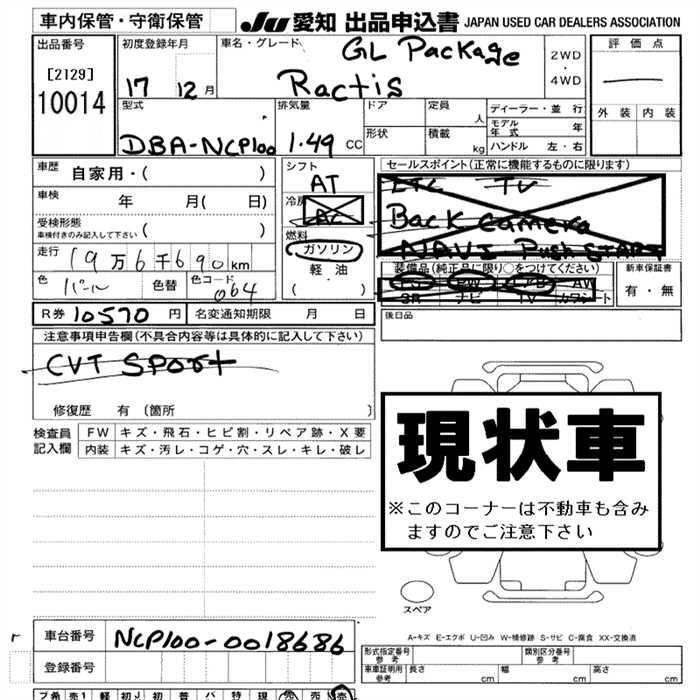 車内保管・守衛保管
JU 愛知 出品申込書 JAPAN USED CAR DEALERS ASSOCIATION
出品番号
[2129]
10014
初度登録年月
17 12月
車名・グレード
GL Package
Ractis
2WD
・
4WD
評価点
外装 内装
型式
DBA-NCP100
排気量
1.49 CC
ドア
形状
定員 人
積載 kg
ディーラー・並 行
モデル年式 年
ハンドル 左・右
車歴 自家用・( )
車検 年 月( 日)
受検形態
車検付きのみ記入して下さい ( )
走行 19万6千690km
色 パール 色替 色コード 064
シフト
AT
冷房
AC
燃料
ガソリン
軽油
( )
セールスポイント(正常に機能するものに限ります)
ETC TV
Back camera
NAVI Push START
装備品(純正品に限り○をつけてください)
PS PW AB AW
SR ナビ TV カワシート
新車保証書
有・無
後日品
R券 10570 円 名変通知期限 月 日
注意事項申告欄(不具合内容等は具体的に記入して下さい)
CVT Sport
修復歴 有 〔箇所 〕
検査員記入欄
FW キズ・飛石・ヒビ割・リペア跡・X要
内装 キズ・汚レ・コゲ・穴・スレ・キレ・破レ
現状車
※このコーナーは不動車も含み
ますのでご注意下さい
スペア
A-キズ E-エクボ U-凹み W-補修跡 S-サビ C-腐食 XX-交換済
車台番号 NCP100-0018686
登録番号
形式指定番号 参考
類別区分番号 参考
車庫証明用 参考 長さ cm 幅 cm 高さ cm